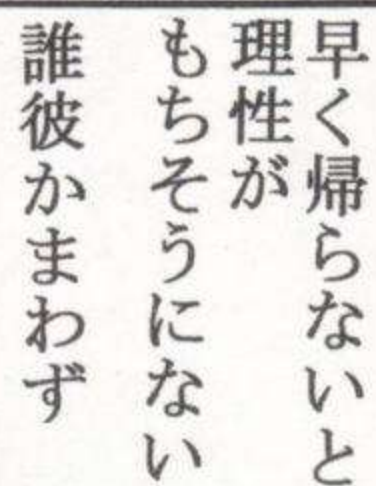 早く帰らないと
理性が
もちそうにない
誰彼かまわず